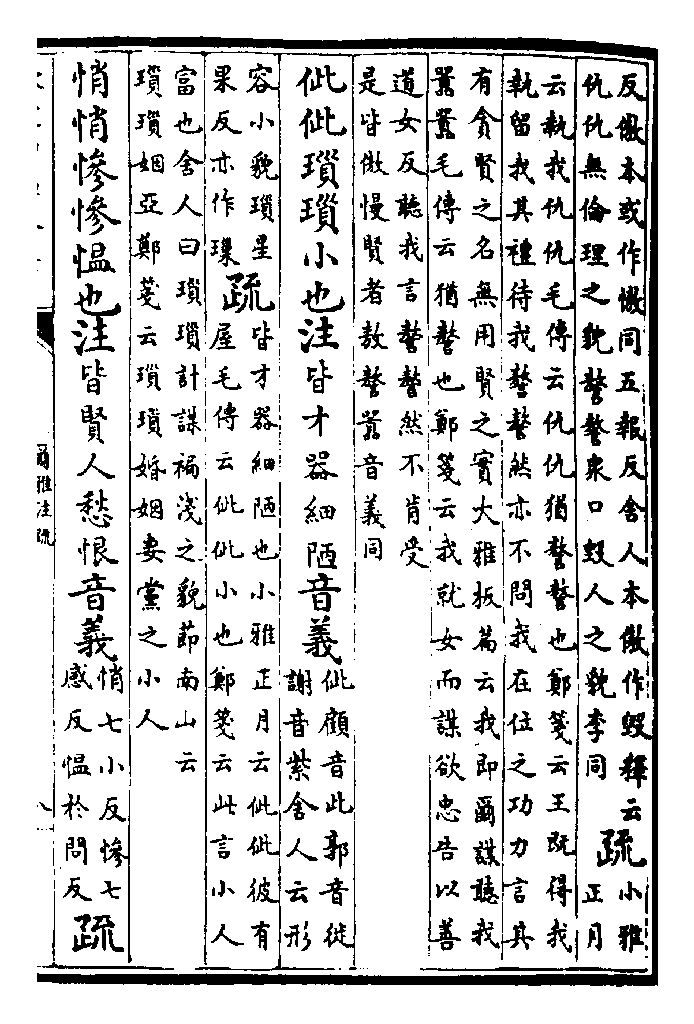 反傲本或作慠同五報反舍人本傲作毁釋云
仇仇無倫理之貌謷謷衆口毁人之貌李同
疏
小雅
正月
云執我仇仇毛傳云仇仇猶謷謷也鄭箋云王既得我
執留我其禮待我謷謷然亦不問我在位之功力言其
有貪賢之名無用賢之實大雅板篇云我即爾謀聽我
嚻嚻毛傳云猶謷也鄭箋云我就女而謀欲忠告以善
道女反聽我言謷謷然不肯受
是皆傲慢賢者敖謷嚻音義同
佌佌瑣瑣小也注皆才器細陋音義
佌顧音此郭音徙
謝音紫舍人云形
容小貌瑣星
果反亦作璅
疏
皆才器細陋也小雅正月云佌佌彼有
屋毛傳云佌佌小也鄭箋云此言小人
富也舍人曰瑣瑣計謀褊淺之貌節南山云
瑣瑣姻亞鄭箋云瑣瑣婚姻妻黨之小人
悄悄慘慘愠也注皆賢人愁恨音義
悄七小反慘七
感反愠於問反
疏
爾雅注疏